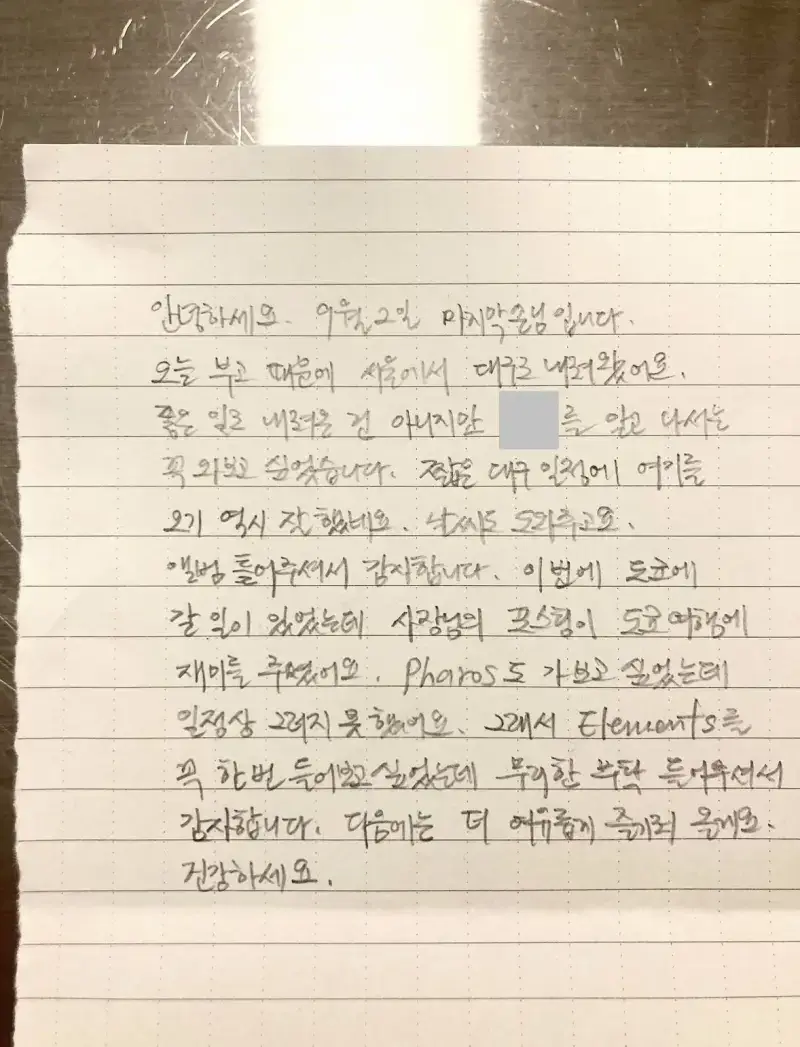 안녕하세요. 9월 2일 마지막 손님입니다.
오늘 부고 때문에 서울에서 대구로 내려왔어요.
좋은 일로 내려온 건 아니지만 를 알고 나서는
꼭 와보고 싶었습니다. 짧은 대구 일정에 여기를
오기 역시 잘했네요. 날씨도 도와주고요.
앨범 틀어주셔서 감사합니다. 이번에 도쿄에
갈 일이 있었는데 사장님의 포스팅이 도쿄여행에
재미를 주었어요. Pharos도 가보고 싶었는데
일정상 그러지 못했어요. 그래서 Elements를
꼭 한번 들어보고 싶었는데 무리한 부탁 들어주셔서
감사합니다. 다음에는 더 여유롭게 즐기러 올게요.
건강하세요.